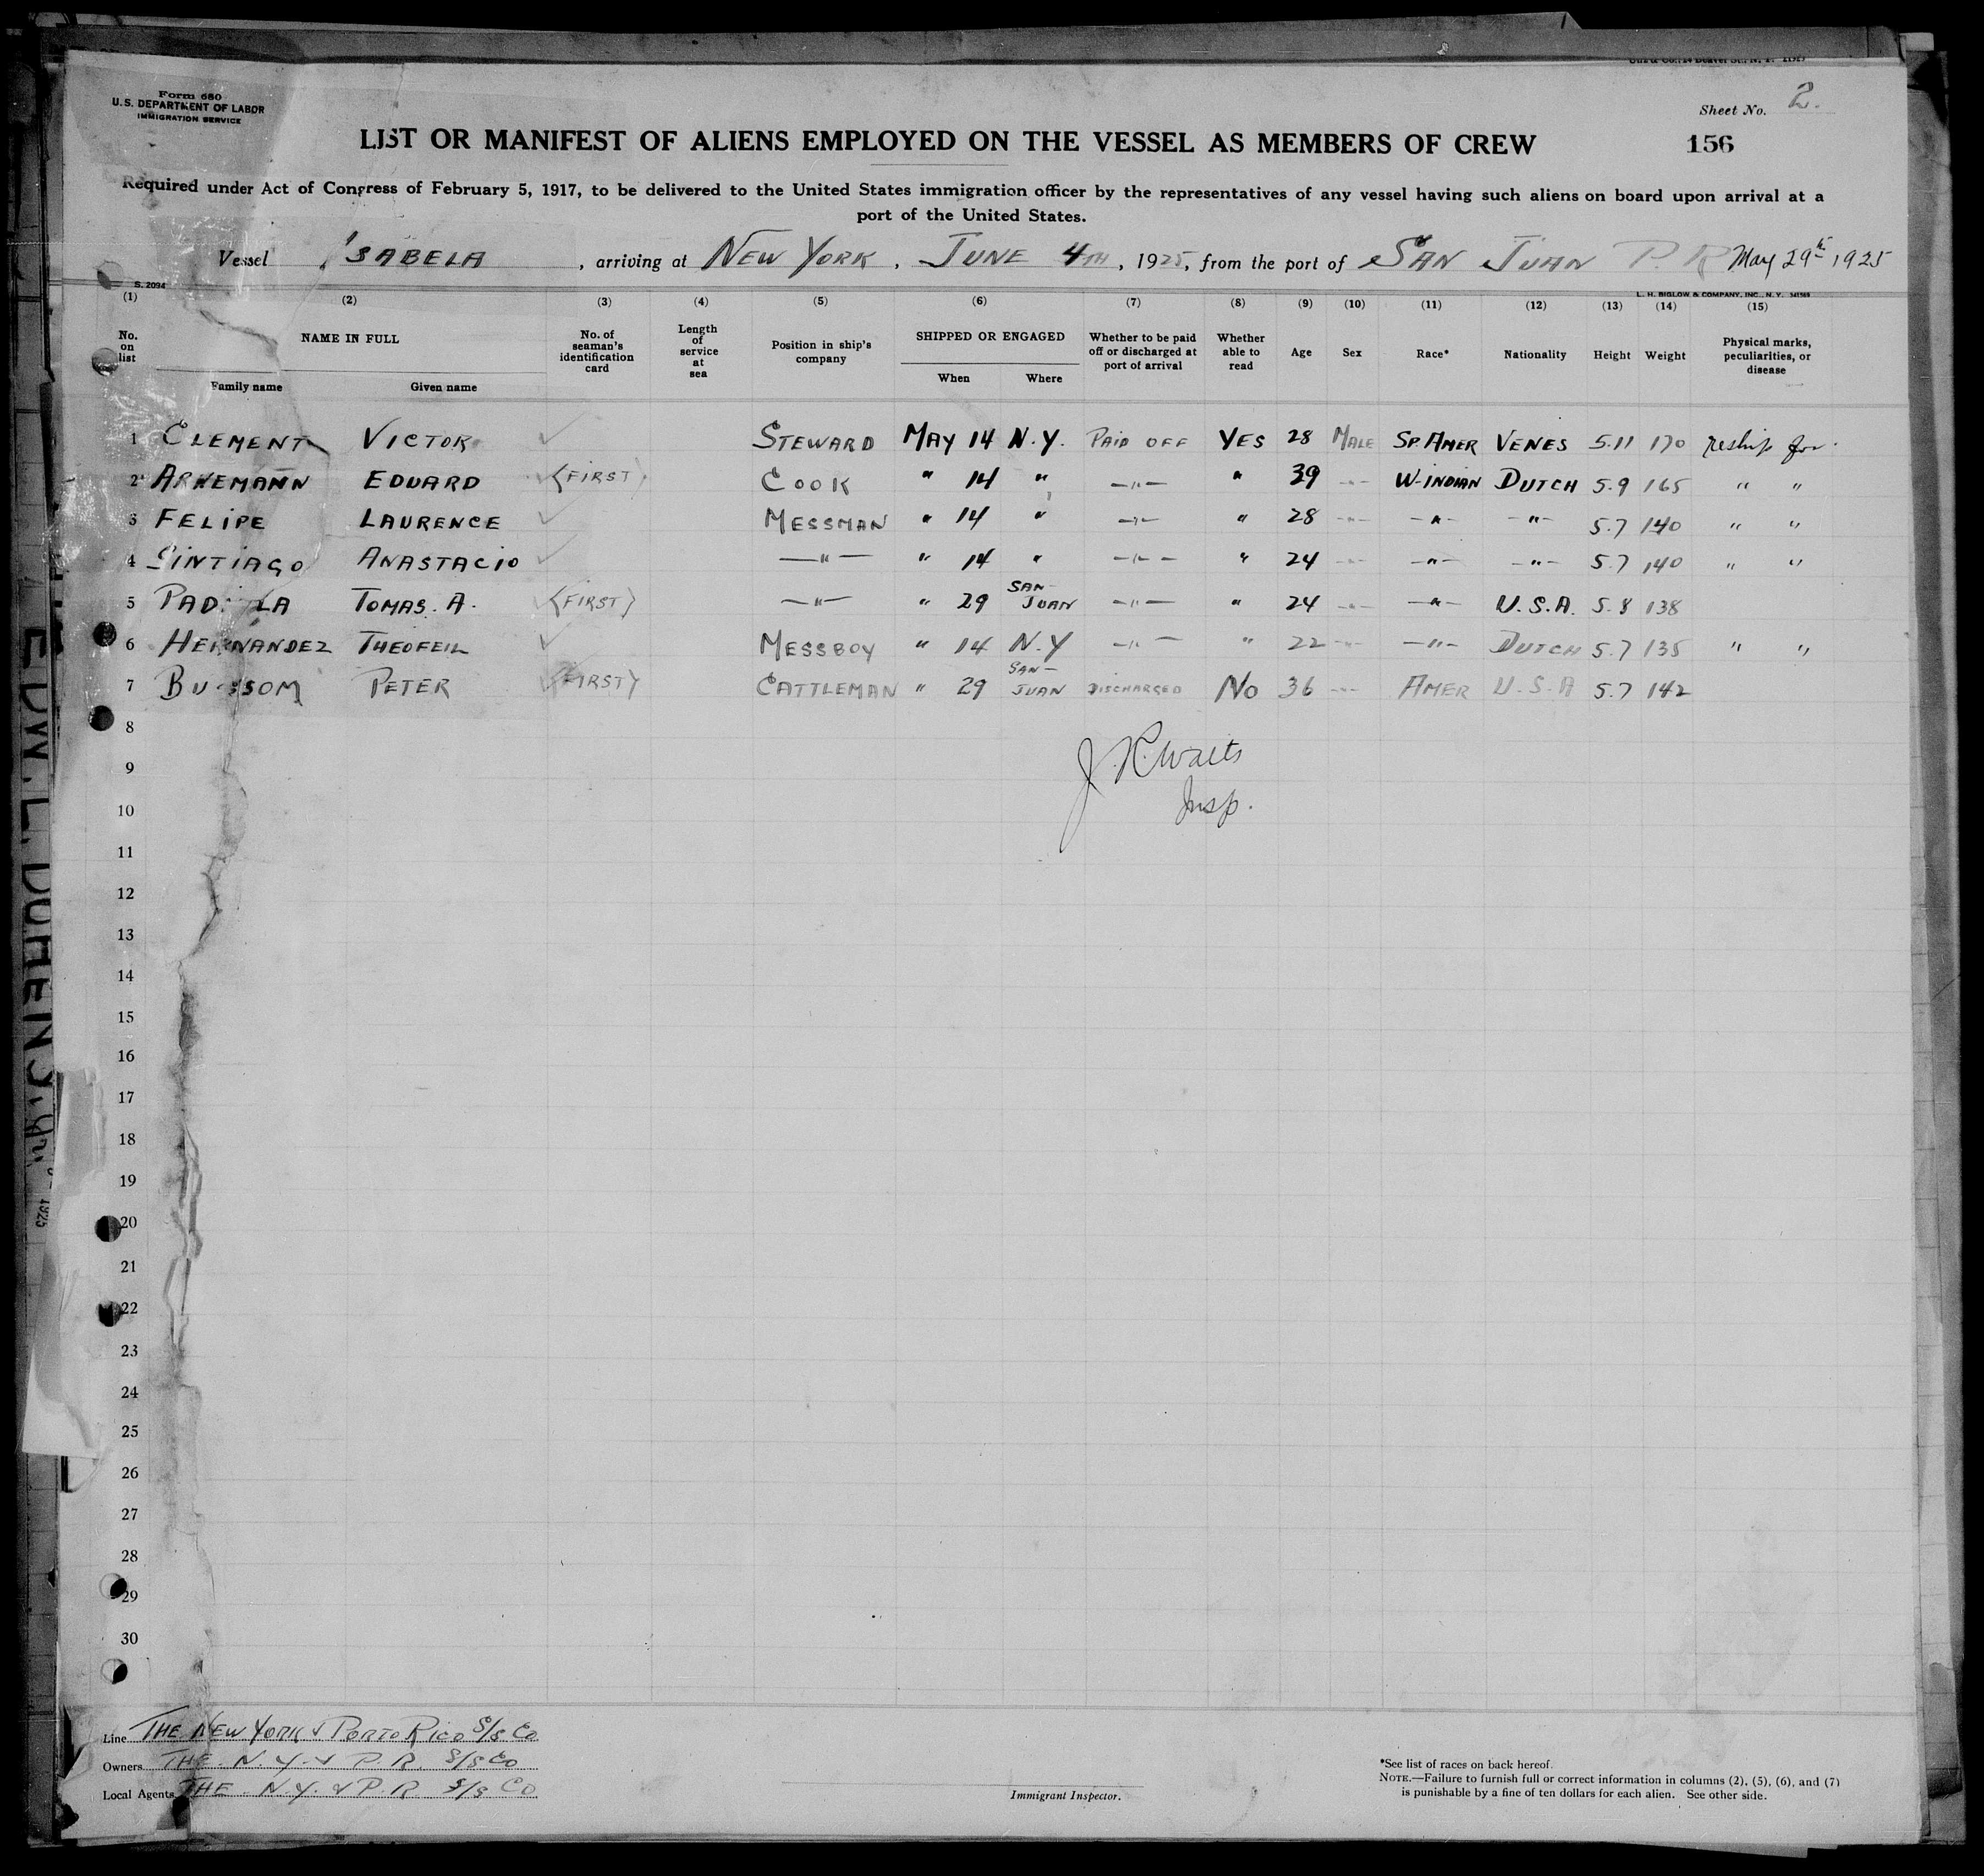 Form 680
U.S. DEPARTMENT OF LABOR
IMMIGRATION SERVICE
Sheet No. 2.
LIST OR MANIFEST OF ALIENS EMPLOYED ON THE VESSEL AS MEMBERS OF CREW
156
Required under Act of Congress of February 5, 1917, to be delivered to the United States immigration officer by the representatives of any vessel having such aliens on board upon arrival at a
port of the United States.
Vessel ISABELA, arriving at NEW YORK, JUNE 4TH, 1925, from the port of SAN JUAN P.R May 29th 1925
S. 2094
L. H. BIGLOW & COMPANY, INC., N.Y.
(1) (2) (3) (4) (5) (6) (7) (8) (9) (10) (11) (12) (13) (14) (15)
No. on list NAME IN FULL Family name Given name No. of seaman's identification card Length of service at sea Position in ship's company SHIPPED OR ENGAGED When Where Whether to be paid off or discharged at port of arrival Whether able to read Age Sex Race* Nationality Height Weight Physical marks, peculiarities, or disease
1 CLEMENT VICTOR ✓ STEWARD MAY 14 N.Y. PAID OFF YES 28 MALE SP. AMER VENES 5.11 170 reship for.
2 ARNEMANN EDUARD ✓ (FIRST) COOK " 14 " —"— " 39 —"— W-INDIAN DUTCH 5.9 165 " "
3 FELIPE LAURENCE ✓ MESSMAN " 14 " —"— " 28 —"— —"— —"— 5.7 140 " "
4 SINTIAGO ANASTACIO ✓ —"— " 14 " —"— " 24 —"— —"— —"— 5.7 140 " "
5 PAD LA TOMAS. A. ✓ (FIRST) —"— " 29 SAN- JUAN —"— " 24 —"— —"— U.S.A. 5.8 138
6 HERNANDEZ THEOFEIL ✓ MESSBOY " 14 N.Y —"— " 22 —"— —"— DUTCH 5.7 135 " "
7 BU SSOM PETER ✓ (FIRST) CATTLEMAN " 29 SAN- JUAN DISCHARGED NO 36 —"— AMER U.S.A 5.7 142
8
J. R. Waits
9
Insp.
10
11
12
13
14
15
16
17
18
19
20
21
22
23
24
25
26
27
28
29
30
Line THE NEW YORK & PORTO RICO S/S Co
Owners THE N.Y. & P.R. S/S Co
Local Agents THE N.Y. & P.R. S/S CO
Immigrant Inspector.
*See list of races on back hereof.
NOTE.—Failure to furnish full or correct information in columns (2), (5), (6), and (7)
is punishable by a fine of ten dollars for each alien. See other side.